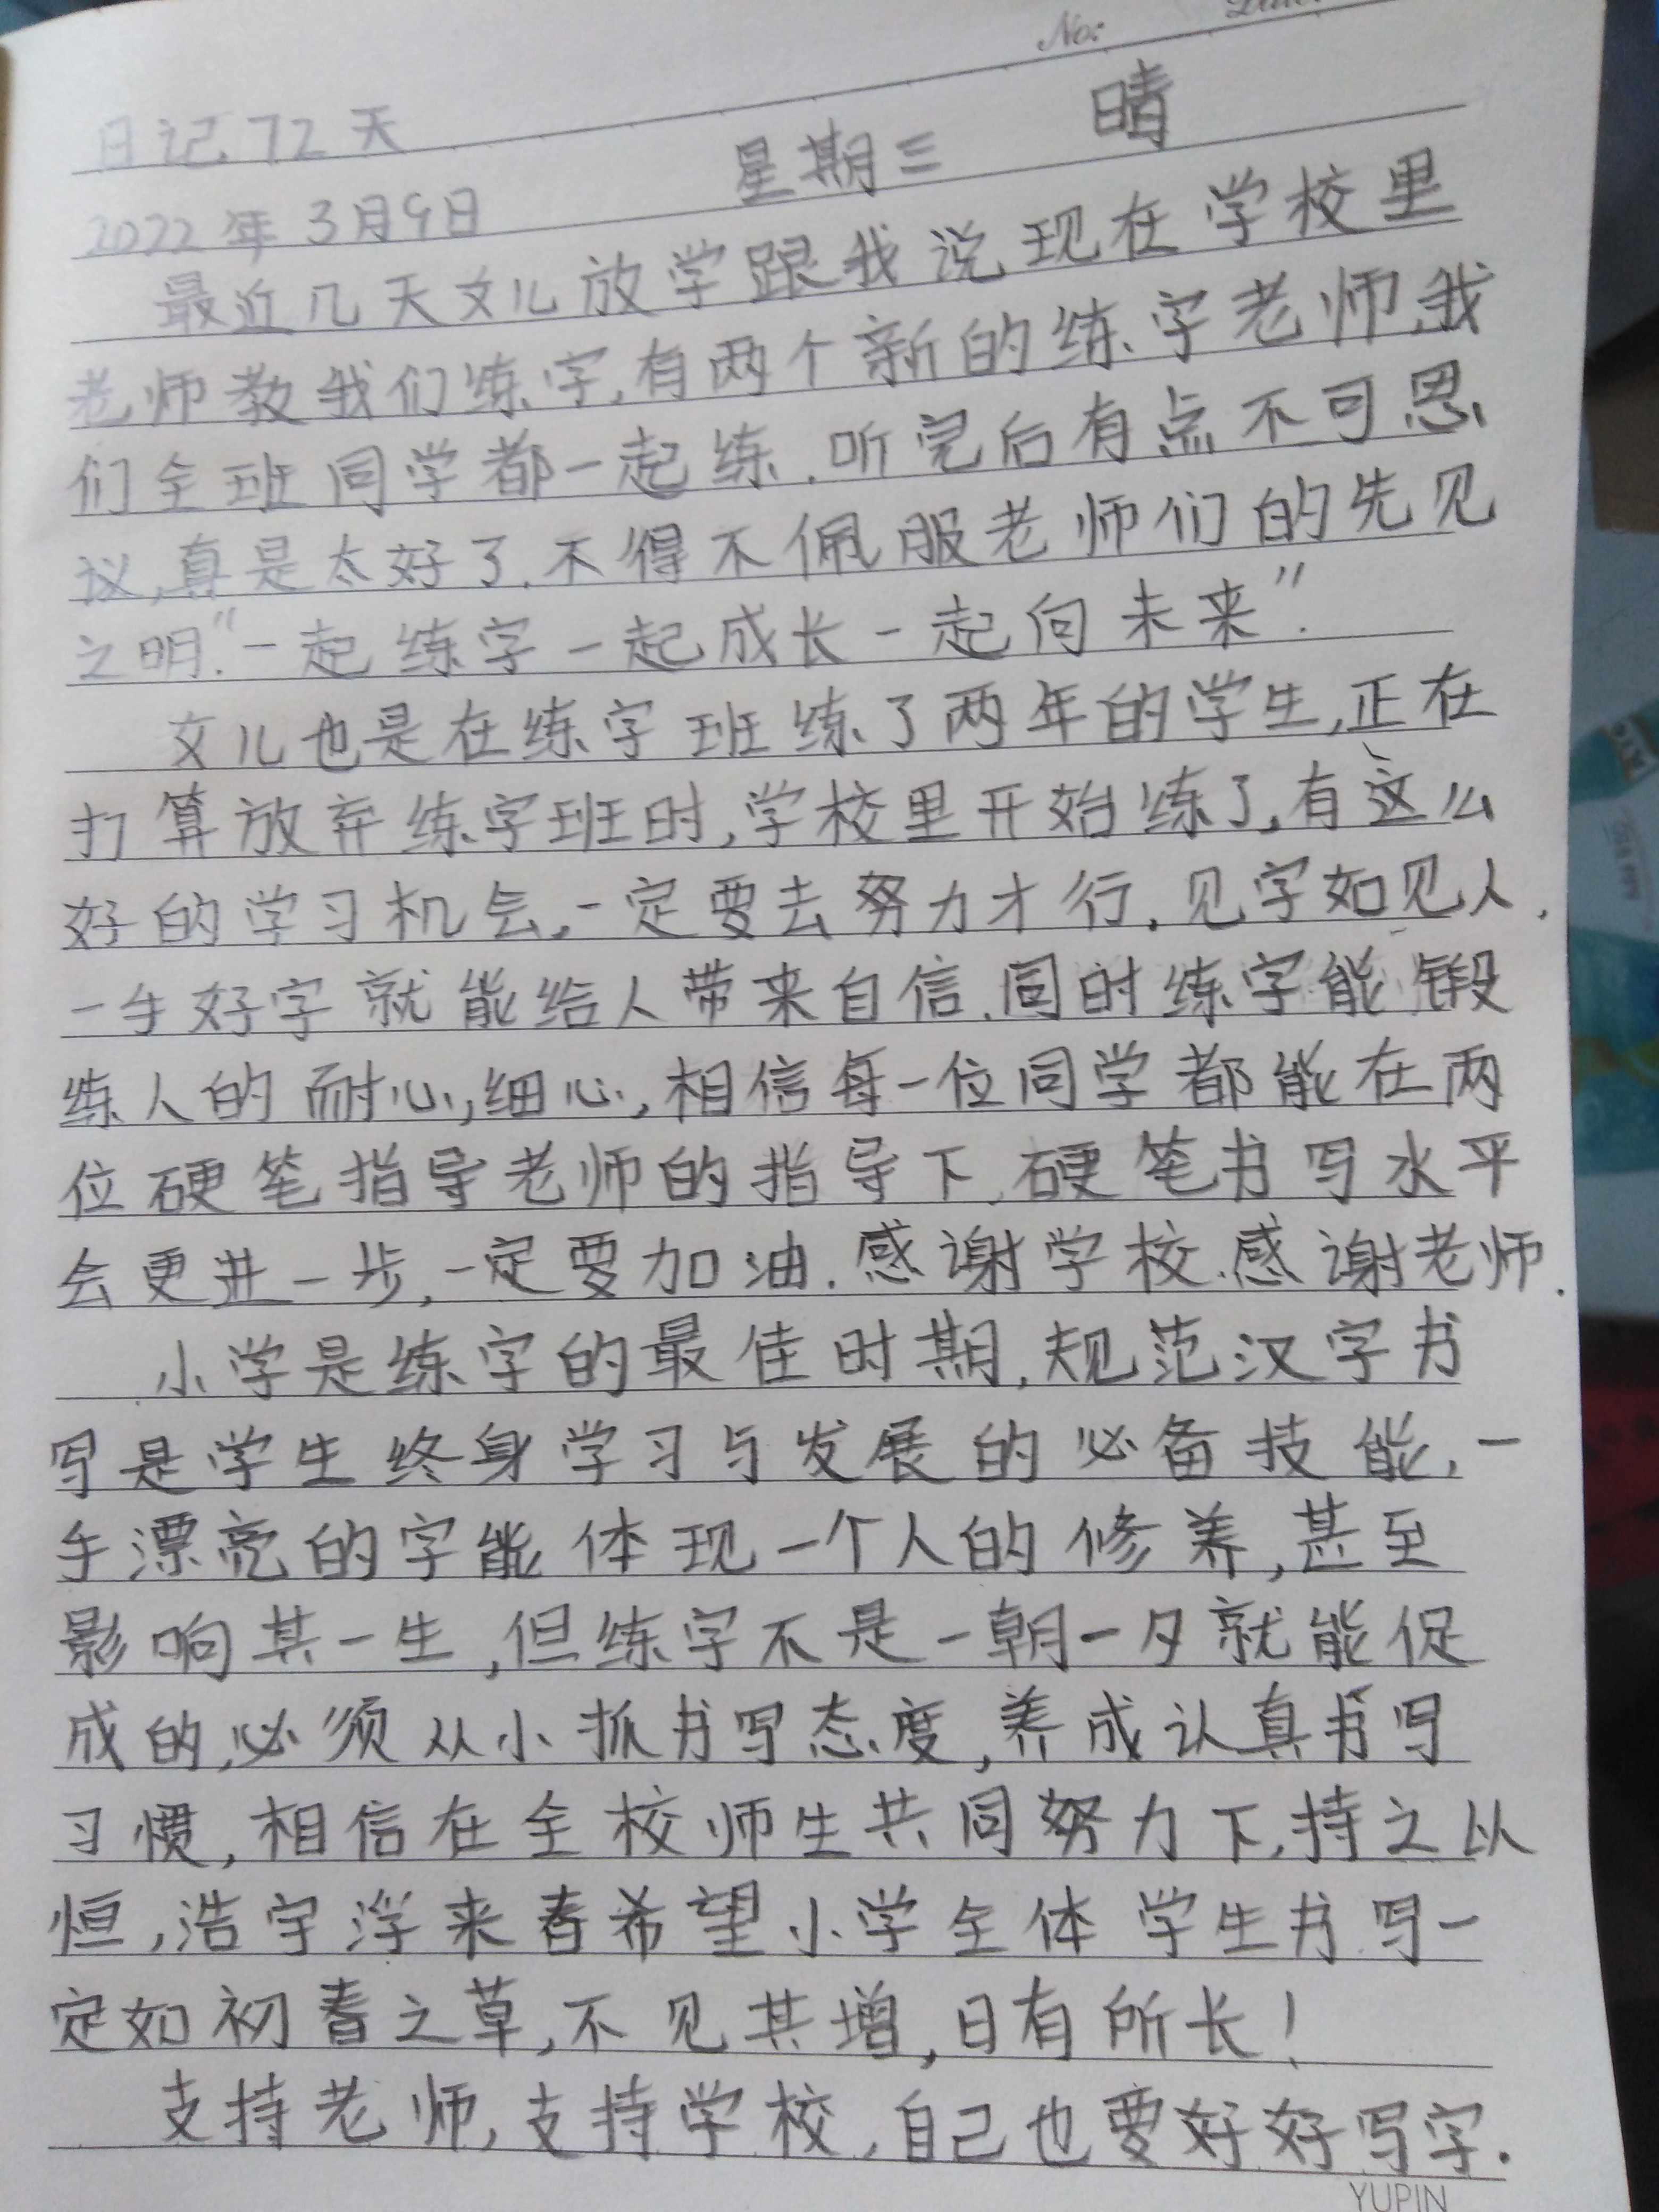 No: Date:
日记72天
2022年3月9日 星期三 晴
最近几天文儿放学跟我说现在学校里
老师教我们练字,有两个新的练字老师,我
们全班同学都一起练.听完后有点不可思
议,真是太好了.不得不佩服老师们的先见
之明."一起练字一起成长一起向未来".
文儿也是在练字班练了两年的学生,正在
打算放弃练字班时,学校里开始练了,有这么
好的学习机会,一定要去努力才行.见字如见人.
一手好字就能给人带来自信.同时练字能锻
练人的耐心,细心,相信每一位同学都能在两
位硬笔指导老师的指导下,硬笔书写水平
会更进一步,一定要加油.感谢学校.感谢老师.
小学是练字的最佳时期,规范汉字书
写是学生终身学习与发展的必备技能,一
手漂亮的字能体现一个人的修养,甚至
影响其一生,但练字不是一朝一夕就能促
成的,必须从小抓书写态度,养成认真书写
习惯,相信在全校师生共同努力下,持之以
恒,浩宇浮来春希望小学全体学生书写一
定如初春之草,不见其增,日有所长!
支持老师,支持学校,自己也要好好写字.
YUPIN